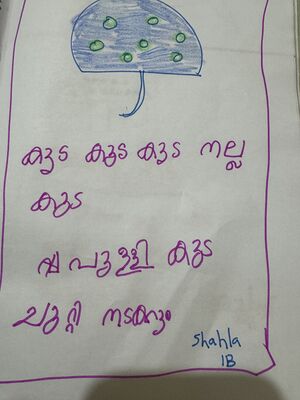 കുട കുട കുട നല്ല
കുട
പുള്ളി കുട
ചുറ്റി നടക്കും
Shahla
1B